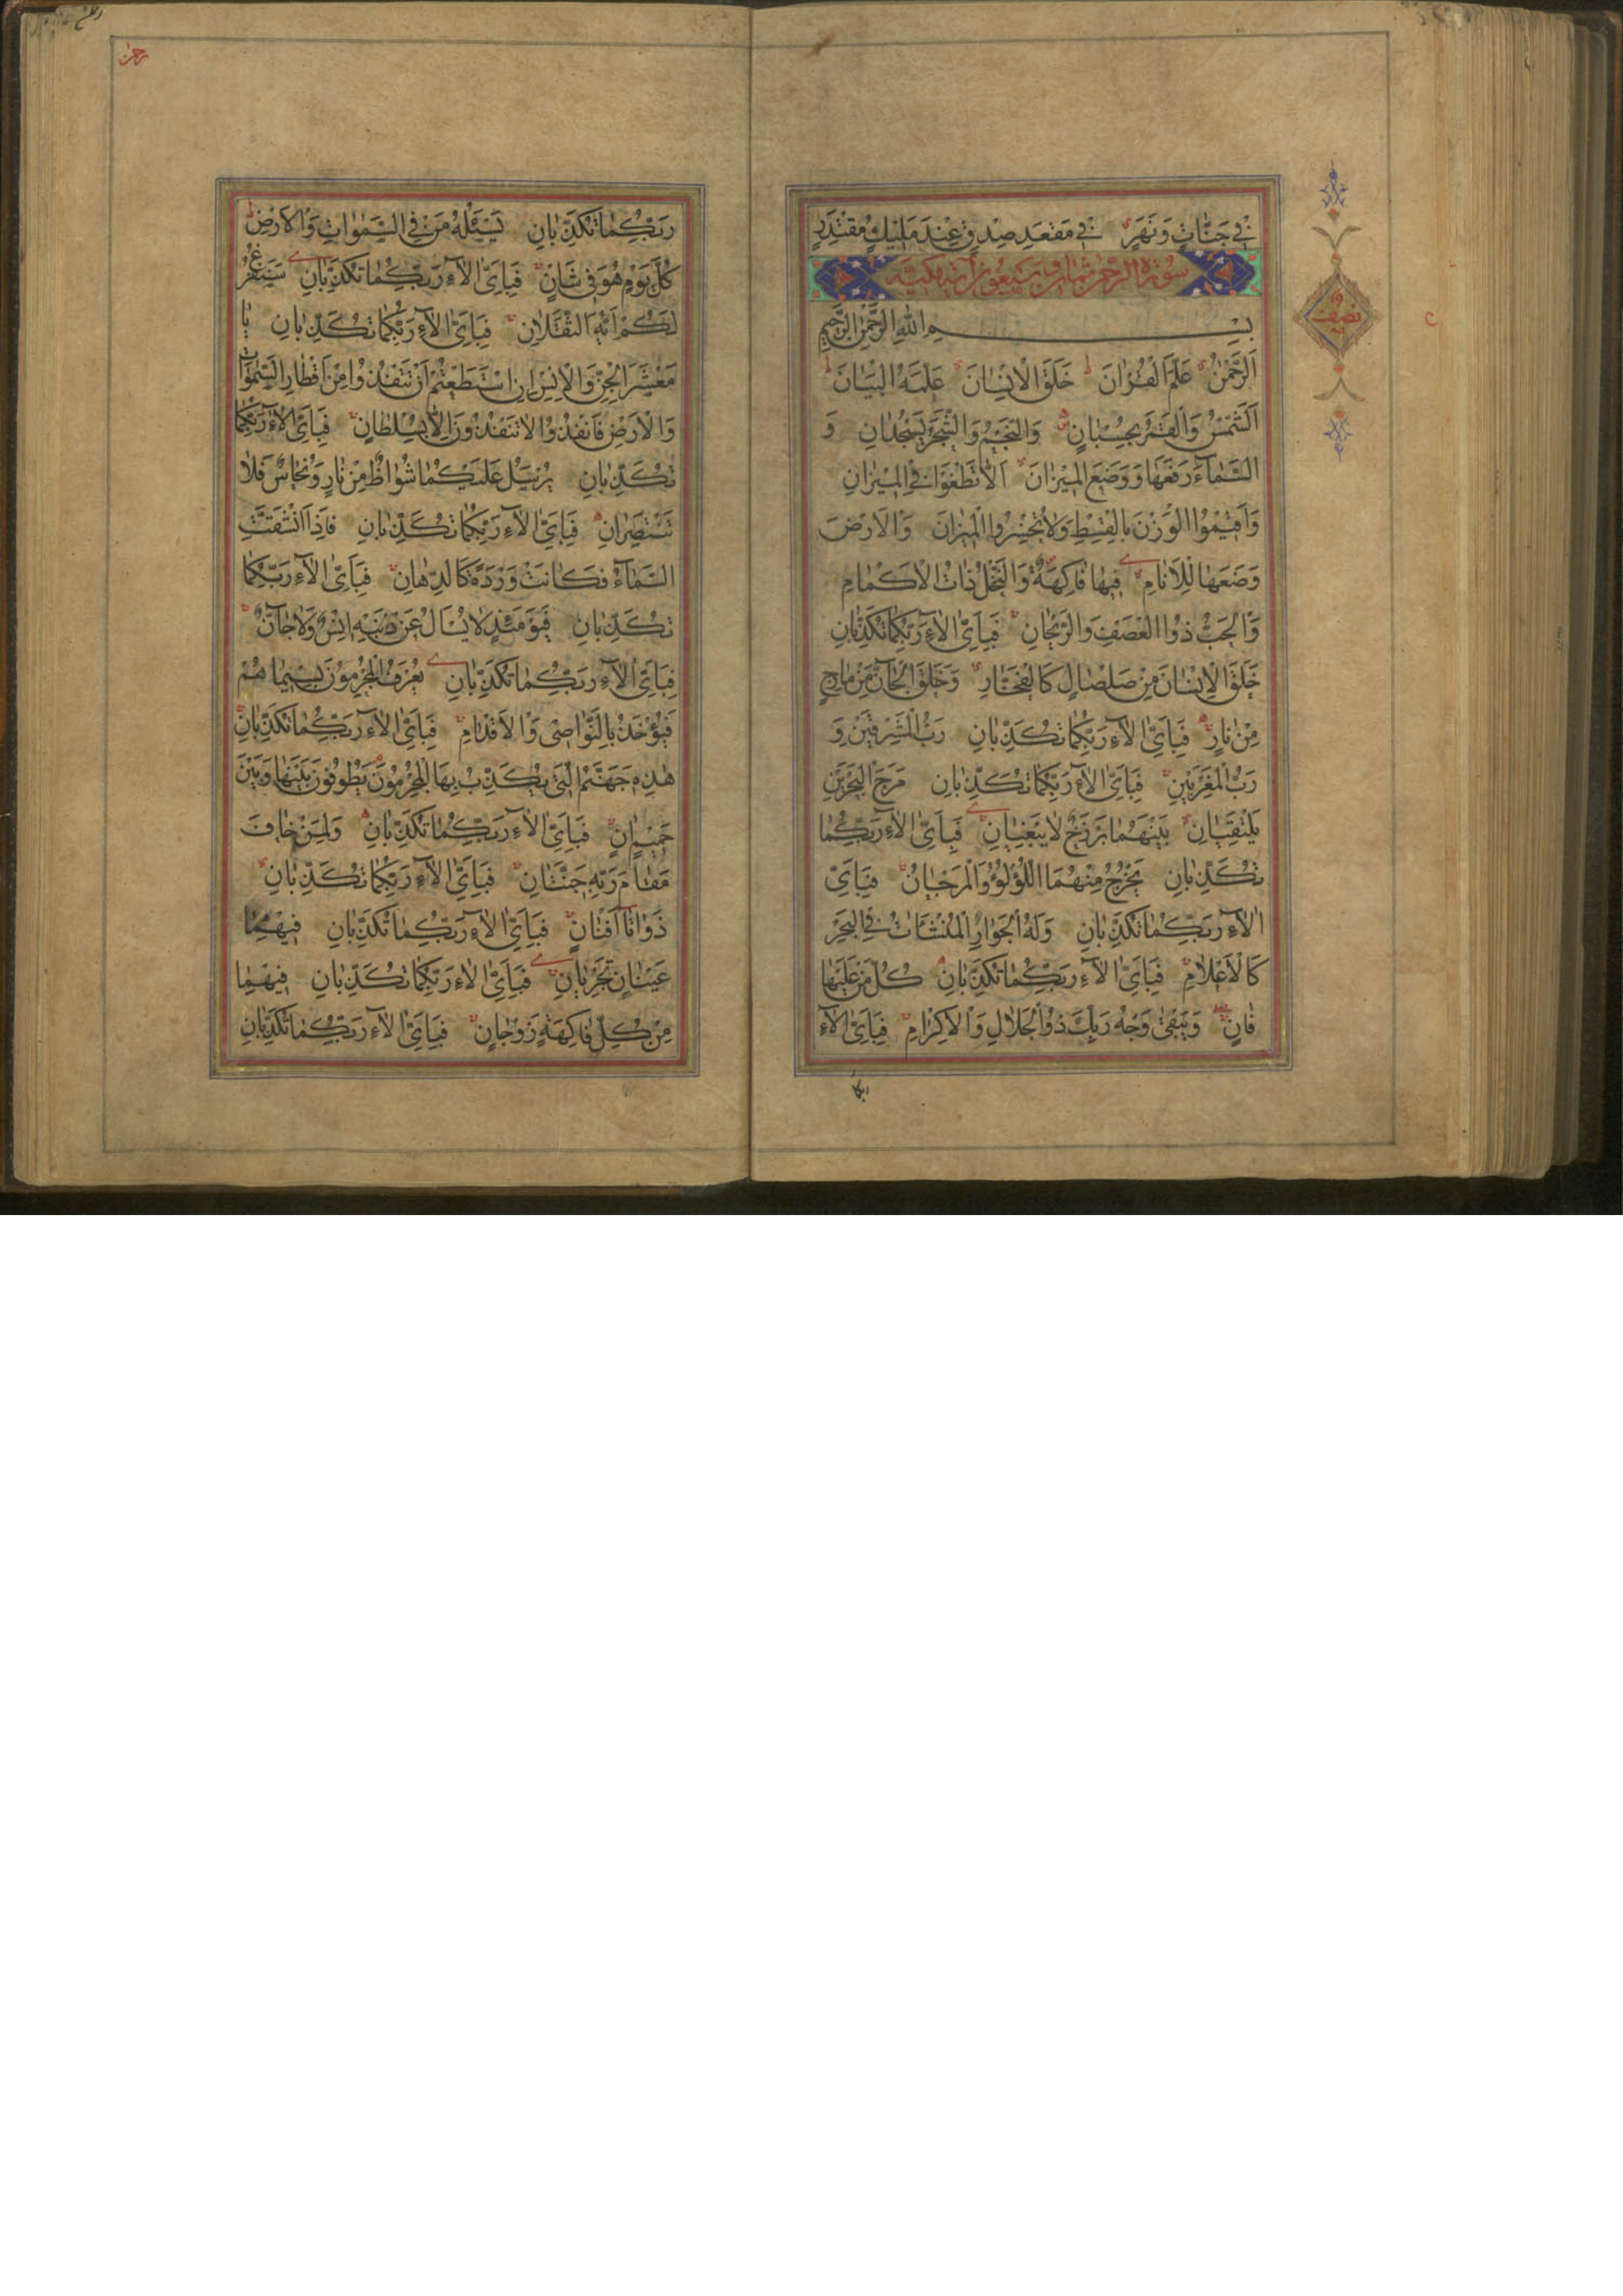 في جَنَّاتٍ وَنَهَرٍ في مَقعَدِ صِدقٍ عِندَ مَليكٍ مُقتَدِرٍ
سورة الرحمن ثمان وسبعون آية مكية
بِسمِ اللهِ الرَّحمنِ الرَّحيمِ
اَلرَّحمنُ عَلَّمَ القُرانَ خَلَقَ الاِنسانَ عَلَّمَهُ البَيانَ
اَلشَّمسُ وَالقَمَرُ بِحُسبانٍ وَالنَّجمُ وَالشَّجَرُ يَسجُدانِ وَ
السَّماءَ رَفَعَها وَوَضَعَ الميزانَ اَلّا تَطغَوا فِي الميزانِ
وَاَقيمُوا الوَزنَ بِالقِسطِ وَلا تُخسِرُوا الميزانَ وَالاَرضَ
وَضَعَها لِلاَنامِ فيها فاكِهَةٌ وَالنَّخلُ ذاتُ الاَكمامِ
وَالحَبُّ ذُوا العَصفِ وَالرَّيحانِ فَبِاَيِّ الآءِ رَبِّكُما تُكَذِّبانِ
خَلَقَ الاِنسانَ مِن صَلصالٍ كَالفَخّارِ وَخَلَقَ الجانَّ مِن مارِجٍ
مِن نارٍ فَبِاَيِّ الآءِ رَبِّكُما تُكَذِّبانِ رَبُّ المَشرِقَينِ وَ
رَبُّ المَغرِبَينِ فَبِاَيِّ الآءِ رَبِّكُما تُكَذِّبانِ مَرَجَ البَحرَينِ
يَلتَقِيانِ بَينَهُما بَرزَخٌ لا يَبغِيانِ فَبِاَيِّ الآءِ رَبِّكُما
تُكَذِّبانِ يَخرُجُ مِنهُمَا اللُّؤلُؤُ وَالمَرجانُ فَبِاَيِّ
الآءِ رَبِّكُما تُكَذِّبانِ وَلَهُ الجَوارِ المُنشَئاتُ فِي البَحرِ
كَالاَعلامِ فَبِاَيِّ الآءِ رَبِّكُما تُكَذِّبانِ كُلُّ مَن عَلَيها
فانٍ وَيَبقى وَجهُ رَبِّكَ ذُو الجَلالِ وَالاِكرامِ فَبِاَيِّ الآءِ
ربكما
نصف
رحمن
رَبِّكُما تُكَذِّبانِ يَسئَلُهُ مَن فِي السَّمواتِ وَالاَرضِ
كُلَّ يَومٍ هُوَ في شَانٍ فَبِاَيِّ الآءِ رَبِّكُما تُكَذِّبانِ سَنَفرُغُ
لَكُم اَيُّهَ الثَّقَلانِ فَبِاَيِّ الآءِ رَبِّكُما تُكَذِّبانِ يا
مَعشَرَ الجِنِّ وَالاِنسِ اِنِ استَطَعتُم اَن تَنفُذُوا مِن اَقطارِ السَّمواتِ
وَالاَرضِ فَانفُذُوا لا تَنفُذُونَ اِلّا بِسُلطانٍ فَبِاَيِّ الآءِ رَبِّكُما
تُكَذِّبانِ يُرسَلُ عَلَيكُما شُواظٌ مِن نارٍ وَنُحاسٌ فَلا
تَنتَصِرانِ فَبِاَيِّ الآءِ رَبِّكُما تُكَذِّبانِ فَاِذَا انشَقَّتِ
السَّماءُ فَكانَت وَردَةً كَالدِّهانِ فَبِاَيِّ الآءِ رَبِّكُما
تُكَذِّبانِ فَيَومَئِذٍ لا يُسئَلُ عَن ذَنبِهِ اِنسٌ وَلا جانٌّ
فَبِاَيِّ الآءِ رَبِّكُما تُكَذِّبانِ يُعرَفُ المُجرِمُونَ بِسيماهُم
فَيُؤخَذُ بِالنَّواصي وَالاَقدامِ فَبِاَيِّ الآءِ رَبِّكُما تُكَذِّبانِ
هذِهِ جَهَنَّمُ الَّتي يُكَذِّبُ بِهَا المُجرِمُونَ يَطُوفُونَ بَينَها وَبَينَ
حَميمٍ انٍ فَبِاَيِّ الآءِ رَبِّكُما تُكَذِّبانِ وَلِمَن خافَ
مَقامَ رَبِّهِ جَنَّتانِ فَبِاَيِّ الآءِ رَبِّكُما تُكَذِّبانِ
ذَواتا اَفنانٍ فَبِاَيِّ الآءِ رَبِّكُما تُكَذِّبانِ فيهِما
عَينانِ تَجرِيانِ فَبِاَيِّ الآءِ رَبِّكُما تُكَذِّبانِ فيهِما
مِن كُلِّ فاكِهَةٍ زَوجانِ فَبِاَيِّ الآءِ رَبِّكُما تُكَذِّبانِ